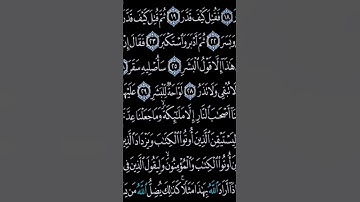 ١٨ فَقُتِلَ كَيْفَ قَدَّرَ ١٩ ثُمَّ قُتِلَ كَيْفَ قَدَّرَ
وَبَسَرَ ٢٢ ثُمَّ أَدْبَرَ وَٱسْتَكْبَرَ ٢٣ فَقَالَ إِنْ
هَٰذَآ إِلَّا قَوْلُ ٱلْبَشَرِ ٢٥ سَأُصْلِيهِ سَقَرَ
لَا تُبْقِى وَلَا تَذَرُ ٢٨ لَوَّاحَةٌ لِّلْبَشَرِ ٢٩ عَلَيْهَا
نَآ أَصْحَٰبَ ٱلنَّارِ إِلَّا مَلَٰٓئِكَةً وَمَا جَعَلْنَا عِدَّ
لِيَسْتَيْقِنَ ٱلَّذِينَ أُوتُوا۟ ٱلْكِتَٰبَ وَيَزْدَادَ ٱلَّذِ
نَ أُوتُوا۟ ٱلْكِتَٰبَ وَٱلْمُؤْمِنُونَ وَلِيَقُولَ ٱلَّذِينَ فِى
ذَآ أَرَادَ ٱللَّهُ بِهَٰذَا مَثَلًا كَذَٰلِكَ يُضِلُّ ٱللَّهُ مَن يَ